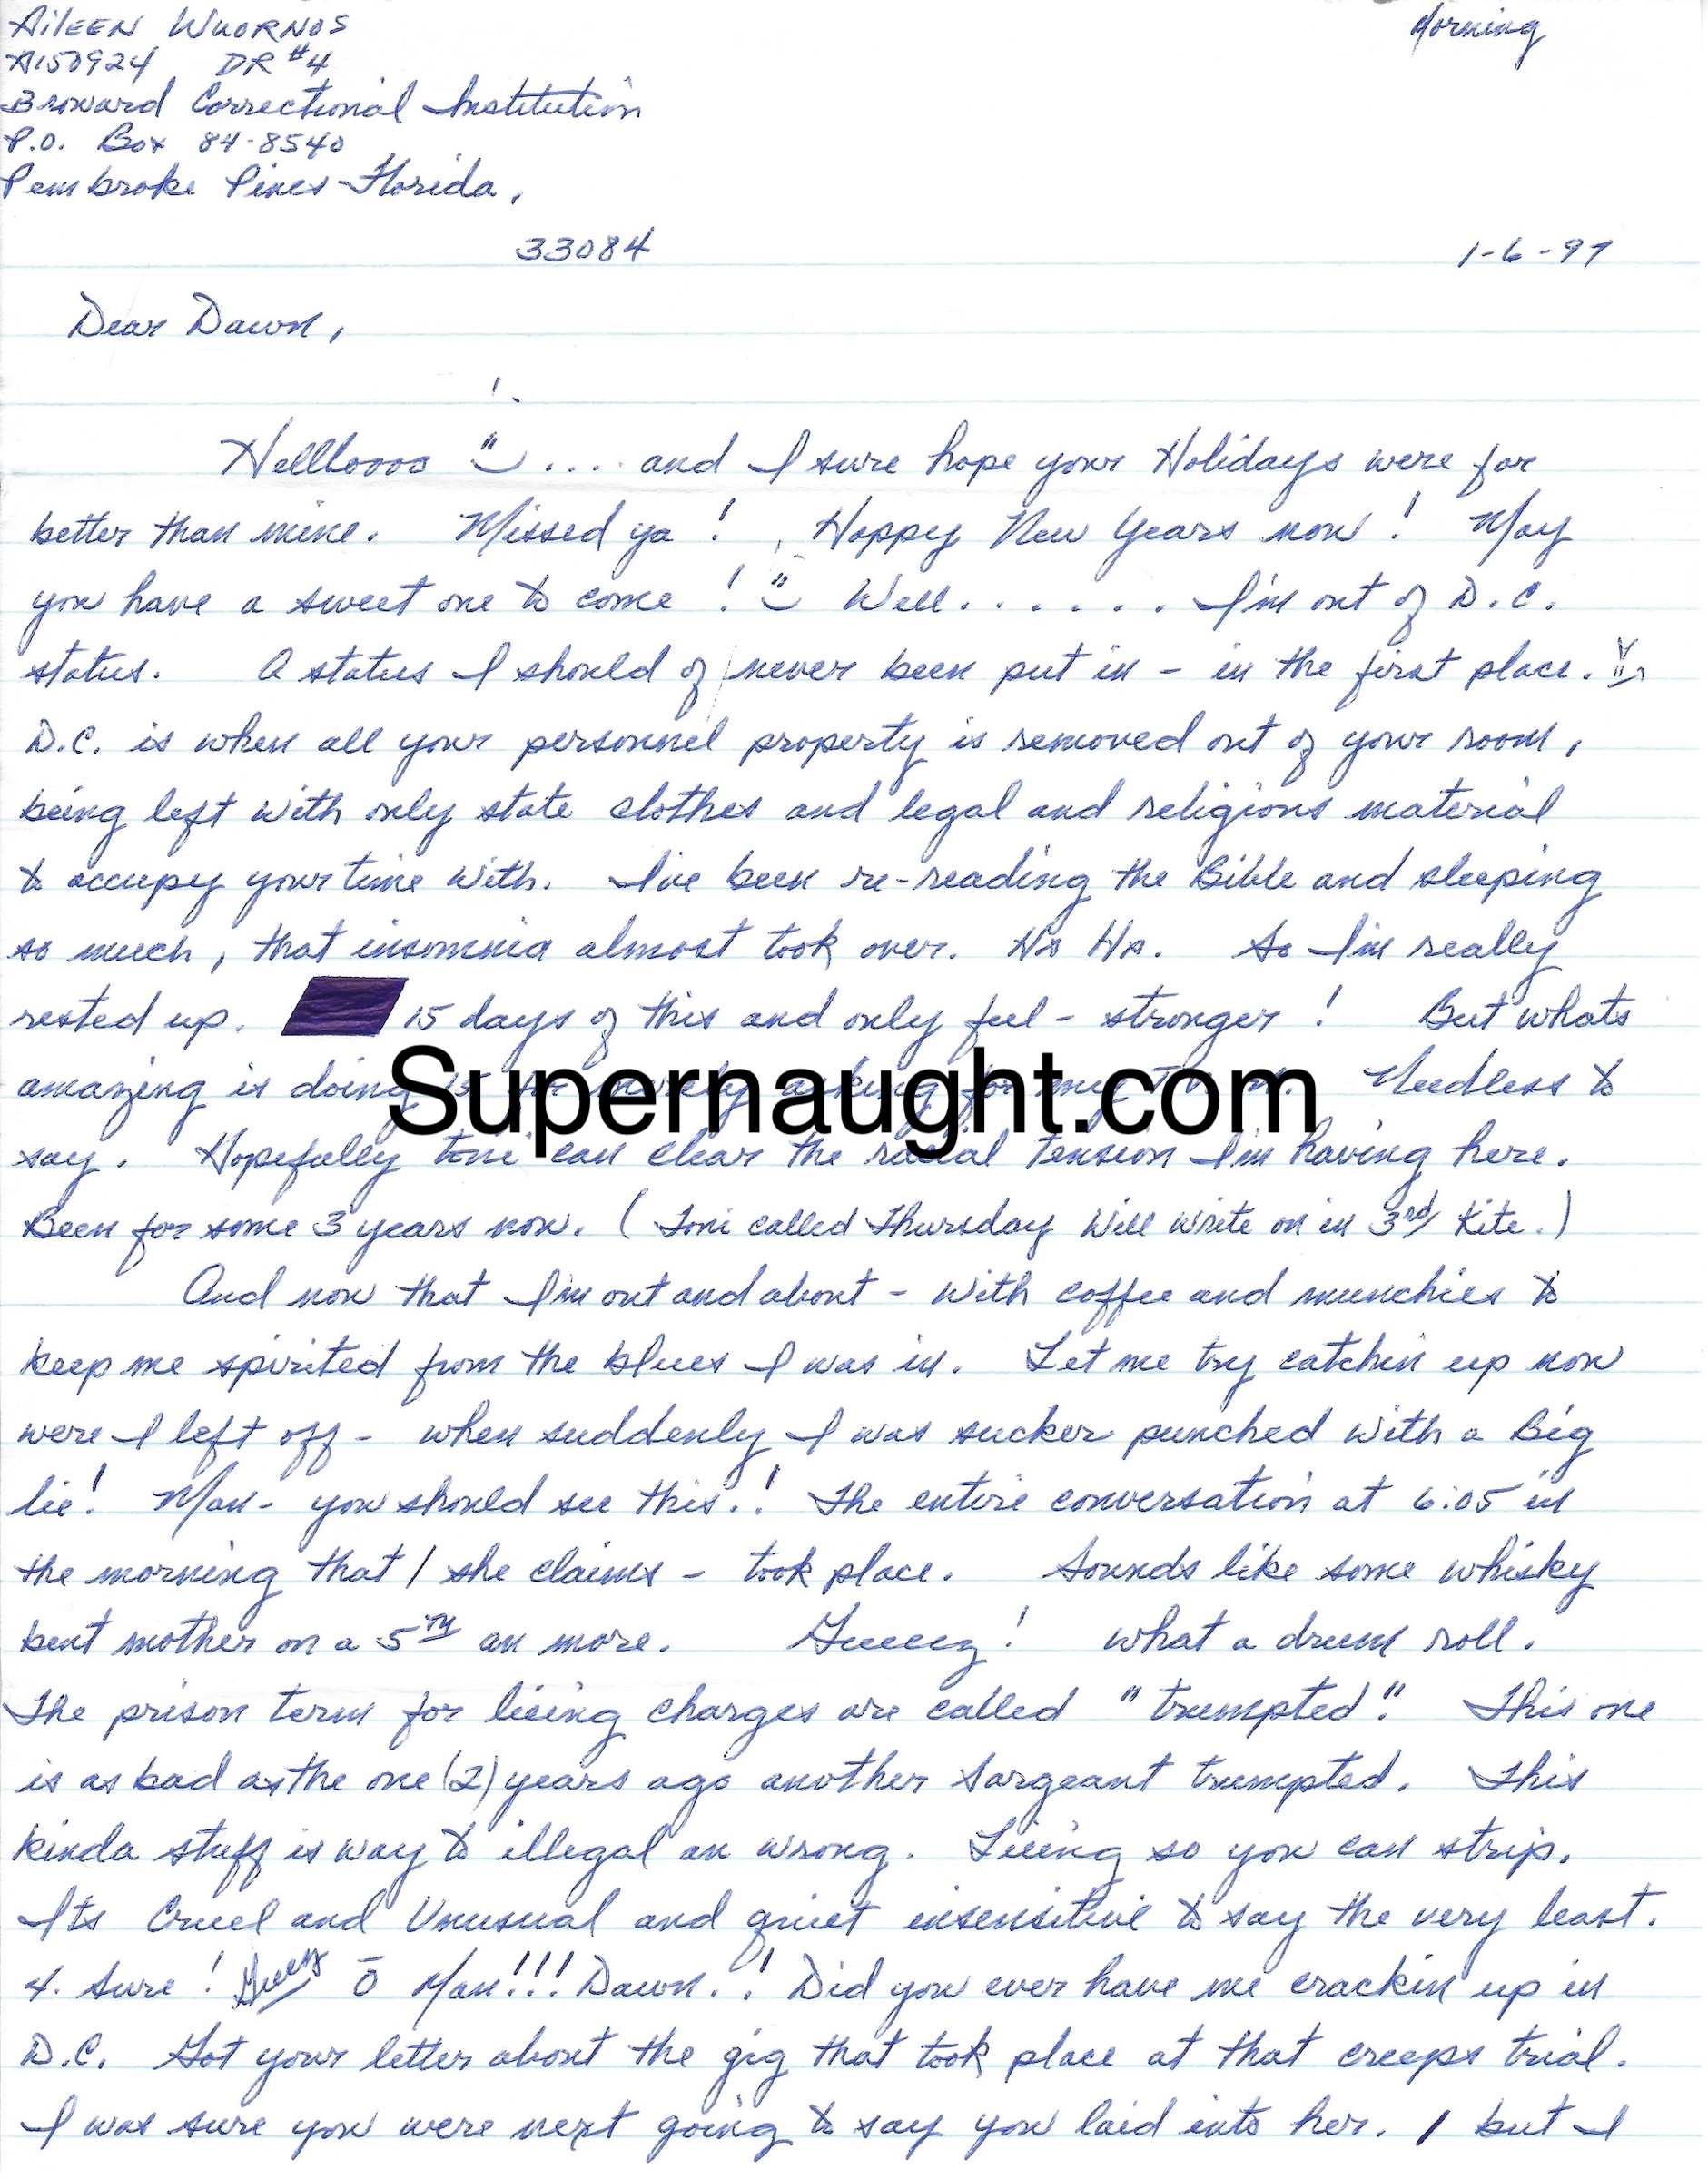 AiLEEN WUORNOS
Morning
A150924 DR #4
Broward Correctional Institution
P.O. Box 84-8540
Pembroke Pines Florida,
33084
1-6-97
Dear Dawn,
Hellloooo .... and I sure hope your Holidays were far
better than mine. Missed ya! Happy New Years now! May
you have a sweet one to come! Well....... I'm out of D.C.
status. A status I should of never been put in - in the first place.
D.C. is when all your personnel property is removed out of your room,
being left with only state clothes and legal and religious material
to occupy your time with. I've been re-reading the Bible and sleeping
so much, that insomnia almost took over. Ha Ha. So I'm really
rested up. 15 days of this and only feel - stronger! But whats
amazing is doing 15 for merely asking for my Needless to
Supernaught.com
say. Hopefully toni can clear the racial tension I'm having here.
Been for some 3 years now. (Toni called Thursday Will write on in 3rd Kite.)
And now that I'm out and about - with coffee and munchies to
keep me spirited from the blues I was in. Let me try catchin up now
were I left off - when suddenly I was sucker punched with a Big
lie! Man- you should see this.! The entire conversation at 6:05 in
the morning that / she claims - took place. Sounds like some whisky
bent mother on a 5TH an more. Geeeez! what a drum roll.
The prison term for lieing charges are called "trumpted". This one
is as bad as the one (2) years ago another Sargeant trumpted. This
kinda stuff is way to illegal an wrong. Lieing so you can strip.
Its Cruel and Unusual and quiet insensitive to say the very least.
4. Sure! Geeez O Man!!! Dawn.! Did you ever have me crackin' up in
D.C. Got your letter about the gig that took place at that creeps trial.
I was sure you were next going to say you laid into her. / but I